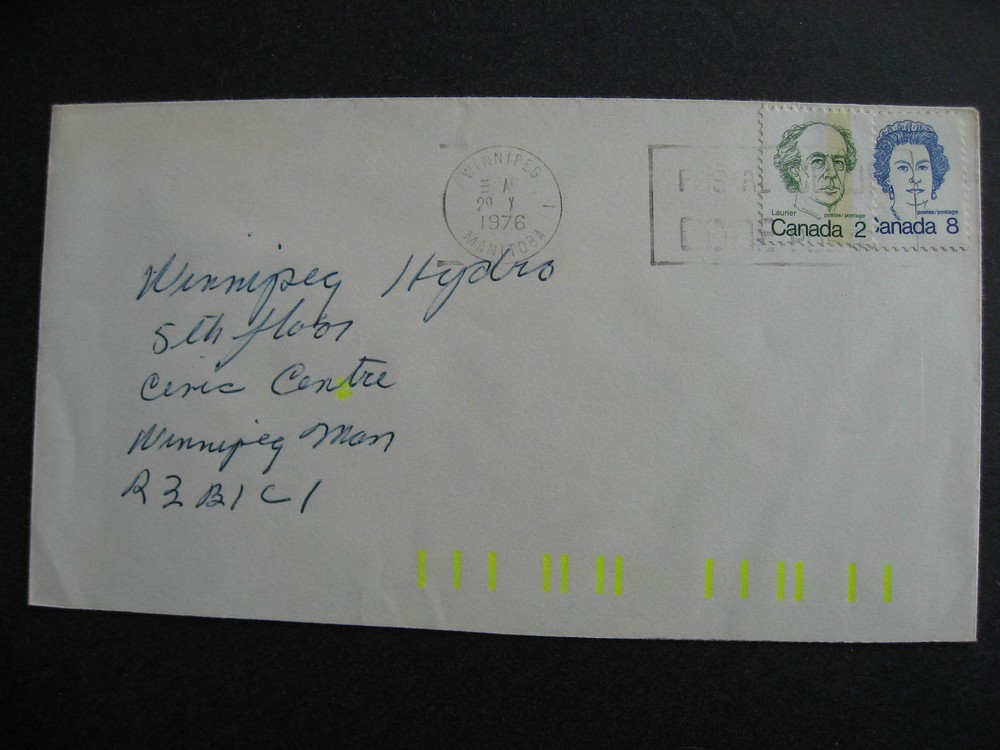 WINNIPEG
29 X
1976
MANITOBA
Laurier
postes/postage
Canada 2
postes/postage
Canada 8
Winnipeg Hydro
5th floor
Civic Centre
Winnipeg Man
R3B1C1